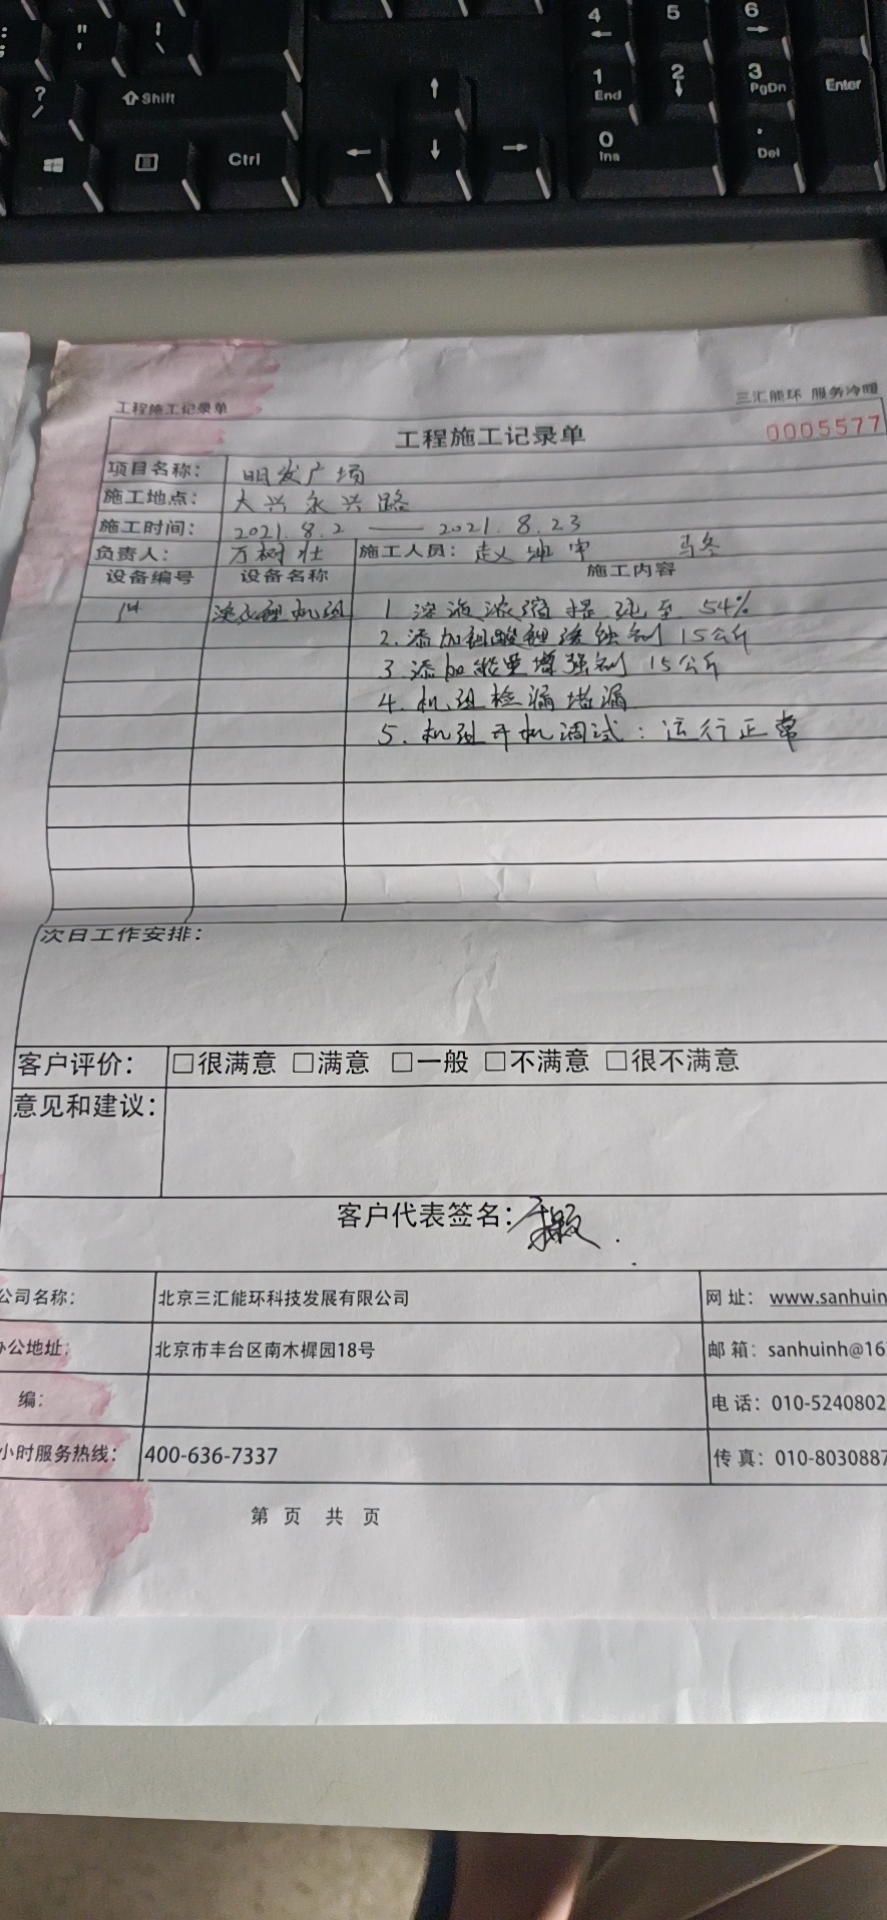 4 5 6
1 End 2 3 PgDn Enter
? / Shift
0 Ins . Del
Ctrl
工程施工记录单 三汇能环 服务冷暖
工程施工记录单 0005577
项目名称: 明发广场
施工地点: 大兴永兴路
施工时间: 2021.8.2 —— 2021.8.23
负责人: 万树壮 施工人员: 赵 马冬
设备编号 设备名称 施工内容
1# 溴化锂机组 1 溶液浓缩提纯至 54%
2. 添加钼酸锂缓蚀剂 15公斤
3 添加能量增强剂 15公斤
4. 机组检漏堵漏
5. 机组开机调试: 运行正常
次日工作安排:
客户评价: □很满意 □满意 □一般 □不满意 □很不满意
意见和建议:
客户代表签名:
公司名称: 北京三汇能环科技发展有限公司 网 址: www.sanhuin
办公地址: 北京市丰台区南木樨园18号 邮 箱: sanhuinh@16
编: 电 话: 010-5240802
小时服务热线: 400-636-7337 传 真: 010-8030887
第 页 共 页